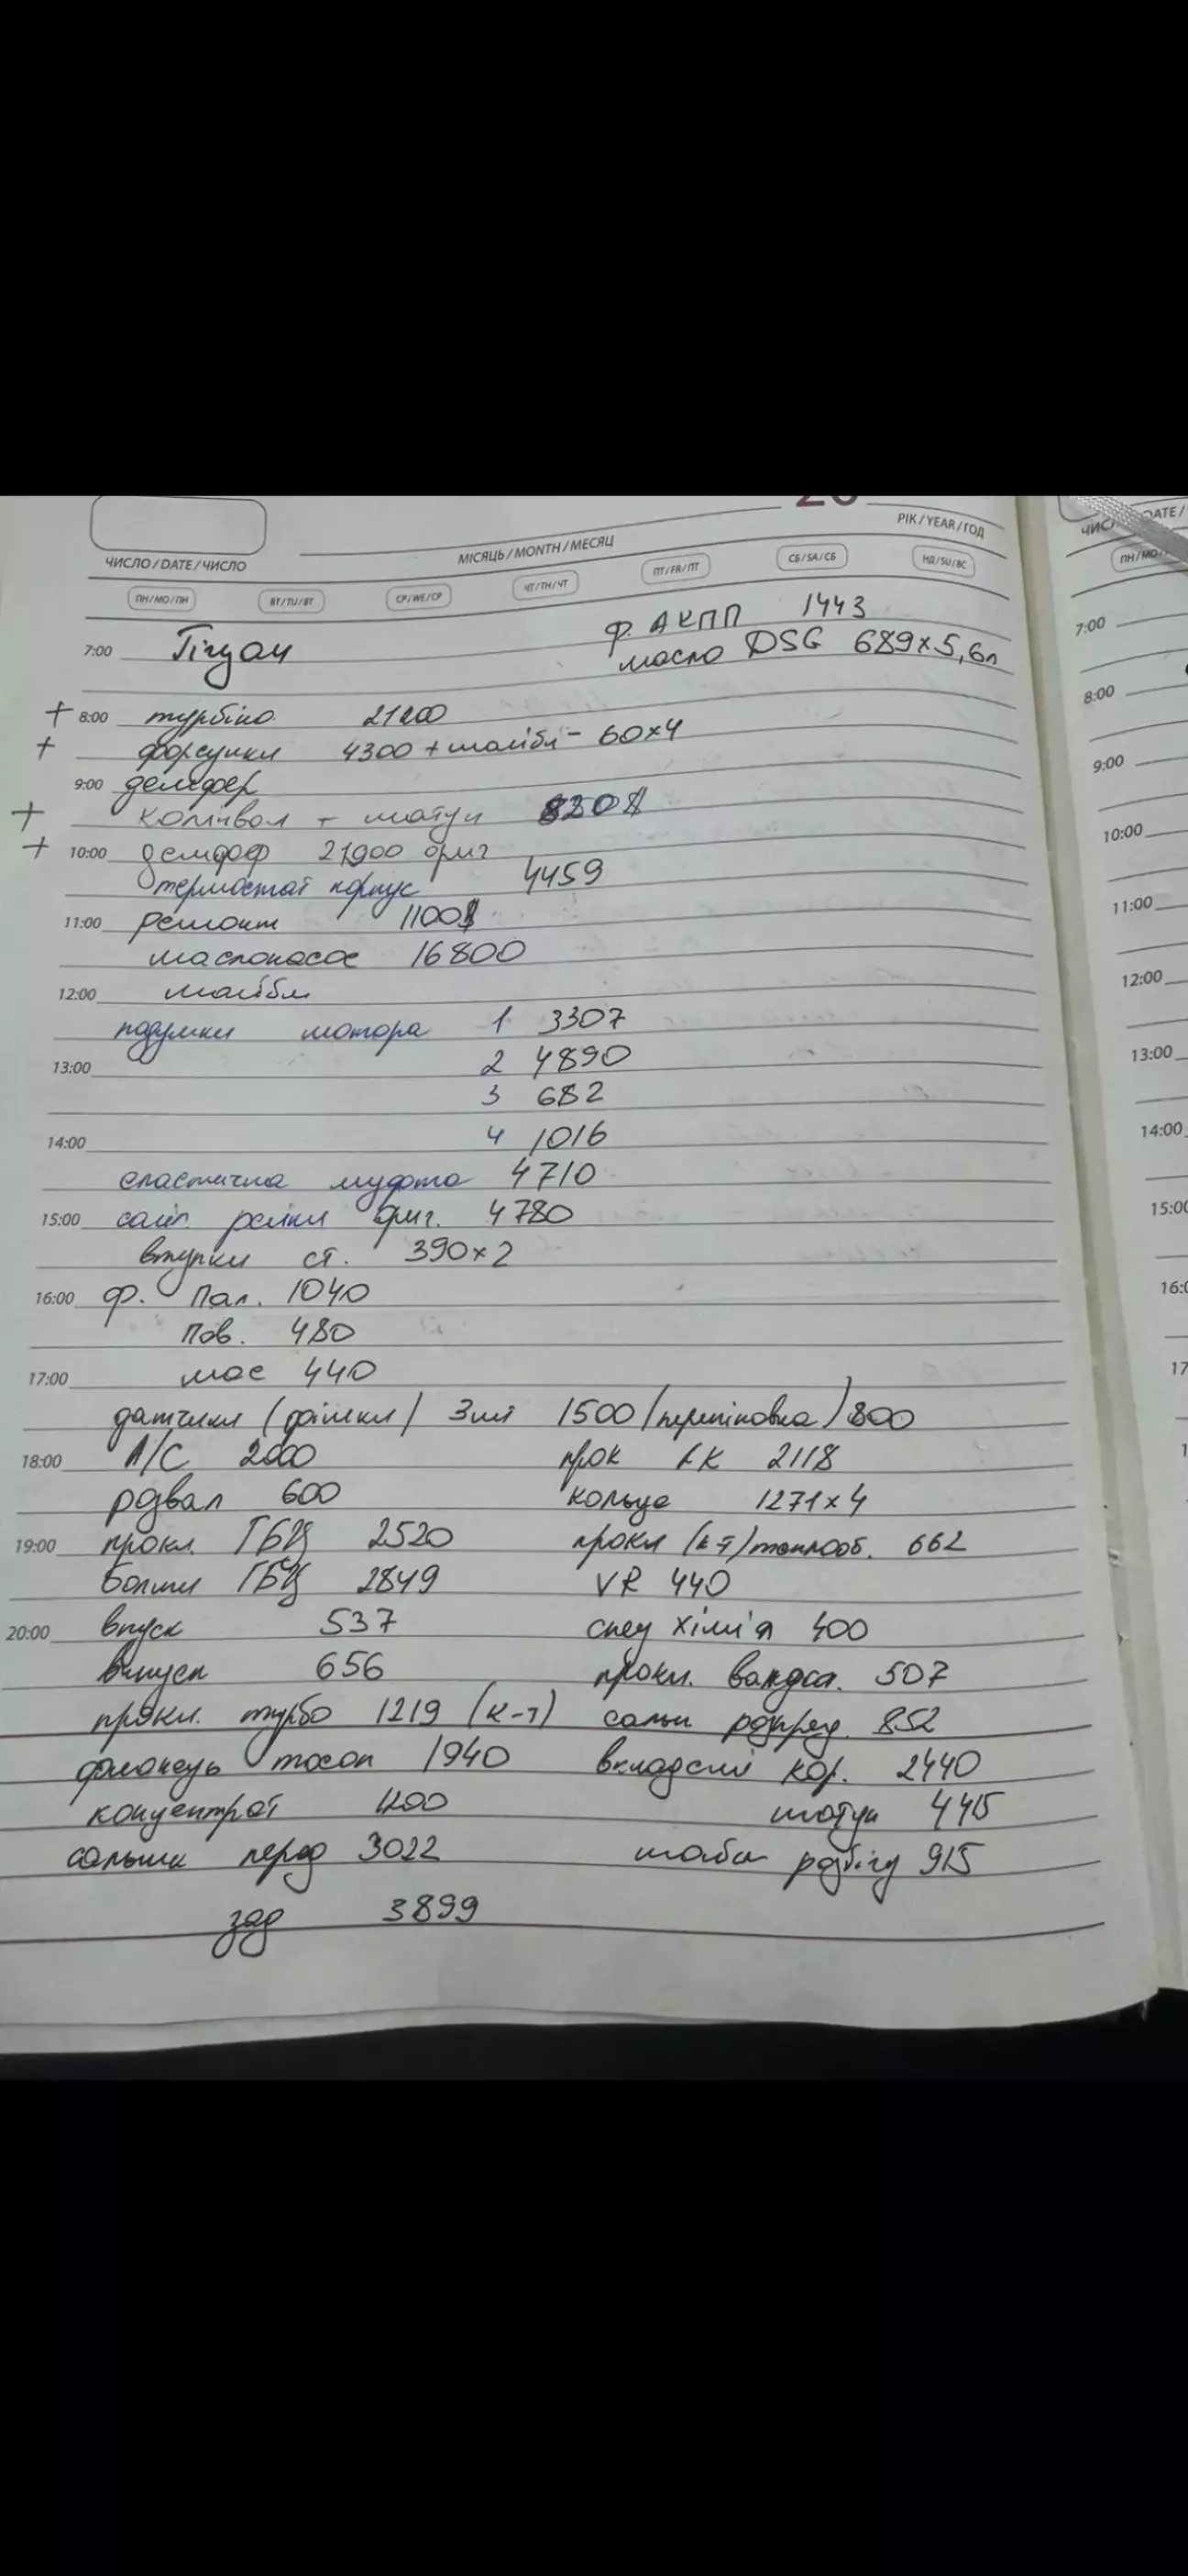 20
ЧИСЛО / DATE / ЧИСЛО
МІСЯЦЬ / MONTH / МЕСЯЦ
РІК / YEAR / ГОД
ПН/MO/ПН ВТ/TU/ВТ СР/WE/СР ЧТ/TH/ЧТ ПТ/FR/ПТ СБ/SA/СБ НД/SU/ВС
ф. АКПП 1443
7:00 Тігуан масло DSG 689x5,6л
+ 8:00 турбіна 21200
+ форсунки 4300 + шайби - 60x4
9:00 демфер
+ колінвал + шатун 820$
+ 10:00 демфер 21900 ориг
термостат корпус 4459
11:00 ремонт 1100$
маслонасос 16800
12:00 шайби
подушки мотора 1 3307
13:00 2 4890
3 682
14:00 4 1016
еластична муфта 4710
15:00 сайл. ориг. 4780
втулки ст. 390x2
16:00 ф. Пал. 1040
Пов. 480
17:00 мас 440
датчики (фішки) 3шт 1500 (перепіновка) 800
18:00 А/С 2000 прок КК 2118
розвал 600 кольца 1271x4
19:00 прокл. ГБЦ 2520 прокл (к-т) теплооб. 662
болти ГБЦ 2849 VR 440
20:00 впуск 537 спец хімія 400
випуск 656 прокл. 507
прокл. турбо 1219 (к-т) сальн розпред. 852
фланець тосол 1940 вкладиші кор. 2440
концентрат 1200 шатун 4415
сальник перед 3022 шайби розбігу 915
зад 3899
ЧИС DATE /
ПН/MO/
7:00
8:00
9:00
10:00
11:00
12:00
13:00
14:00
15:00
16:0
17
1